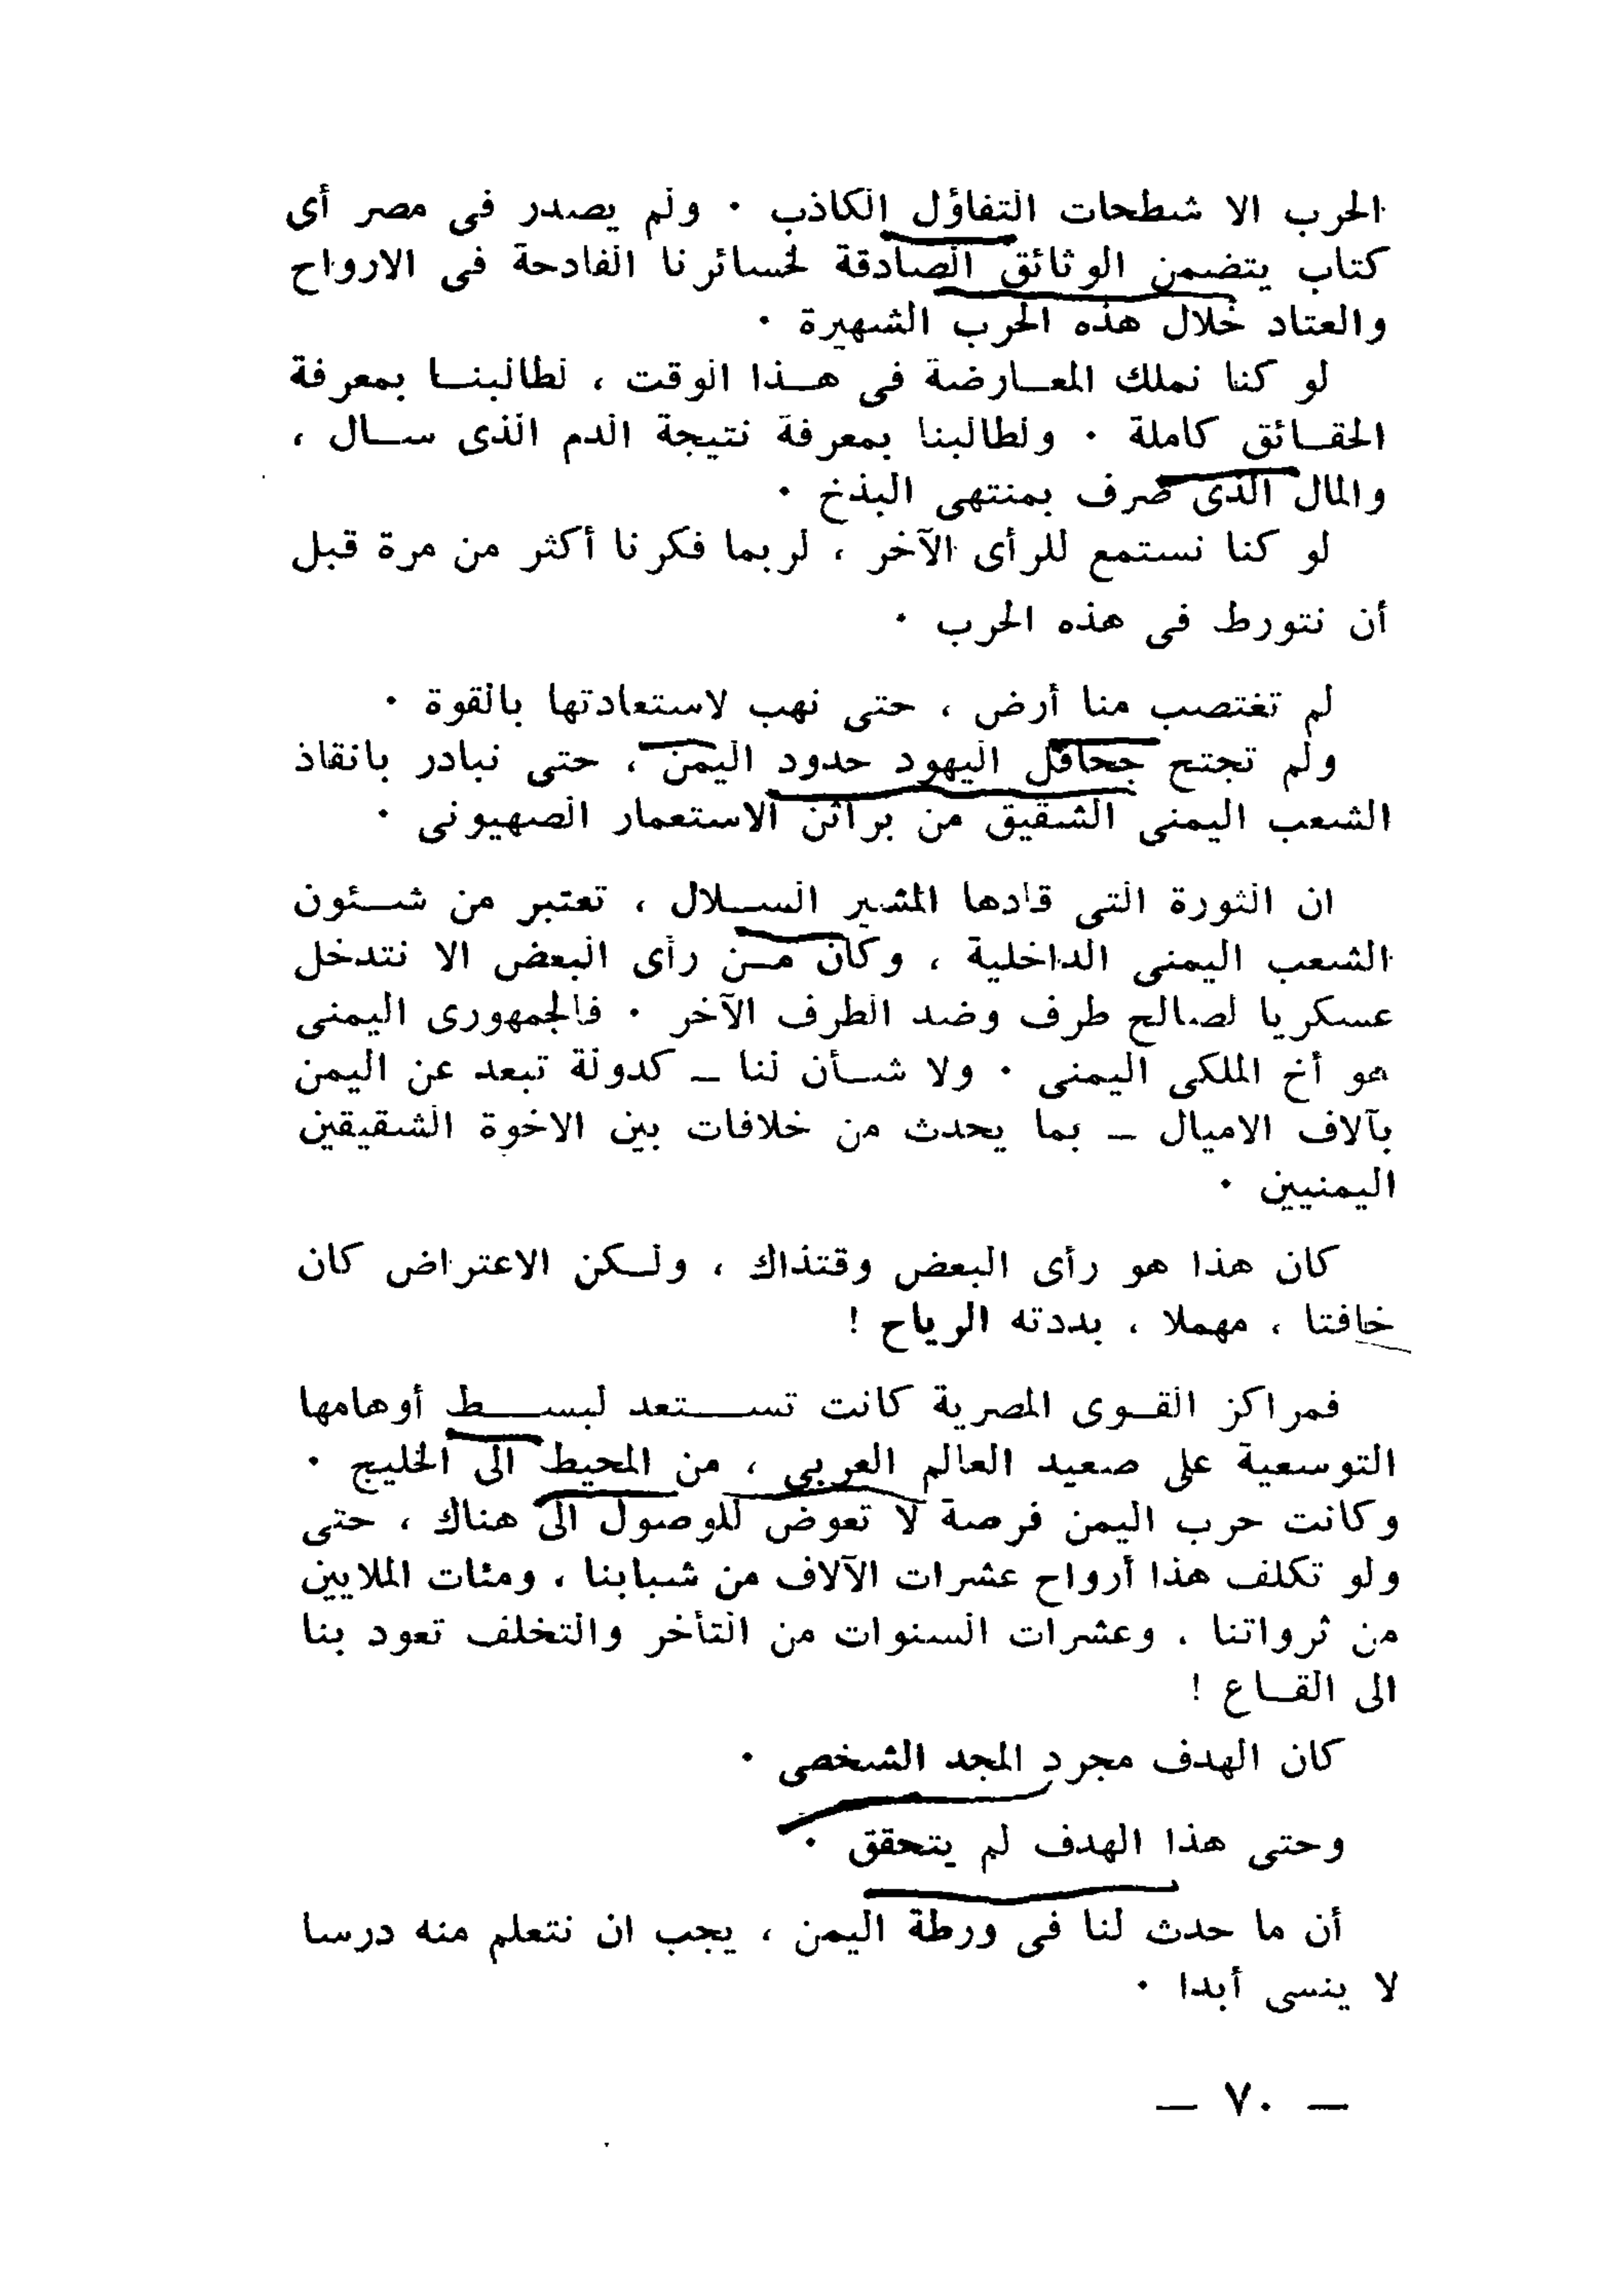 الحرب الا شطحات التفاؤل الكاذب . ولم يصدر فى مصر أى
كتاب يتضمن الوثائق الصادقة لخسائرنا الفادحة فى الارواح
والعتاد خلال هذه الحرب الشهيرة .
لو كنا نملك المعارضة فى هذا الوقت ، لطالبنا بمعرفة
الحقائق كاملة . ولطالبنا بمعرفة نتيجة الدم الذى سال ،
والمال الذى صرف بمنتهى البذخ .
لو كنا نستمع للرأى الآخر ، لربما فكرنا أكثر من مرة قبل
أن نتورط فى هذه الحرب .
لم تغتصب منا أرض ، حتى نهب لاستعادتها بالقوة .
ولم تجتح جحافل اليهود حدود اليمن ، حتى نبادر بانقاذ
الشعب اليمنى الشقيق من براثن الاستعمار الصهيونى .
ان الثورة التى قادها المشير السلال ، تعتبر من شئون
الشعب اليمنى الداخلية ، وكان من رأى البعض الا نتدخل
عسكريا لصالح طرف وضد الطرف الآخر . فالجمهورى اليمنى
هو أخ الملكى اليمنى . ولا شأن لنا – كدولة تبعد عن اليمن
بآلاف الاميال – بما يحدث من خلافات بين الاخوة الشقيقين
اليمنيين .
كان هذا هو رأى البعض وقتذاك ، ولكن الاعتراض كان
خافتا ، مهملا ، بددته الرياح !
فمراكز القوى المصرية كانت تستعد لبسط أوهامها
التوسعية على صعيد العالم العربى ، من المحيط الى الخليج .
وكانت حرب اليمن فرصة لا تعوض للوصول الى هناك ، حتى
ولو تكلف هذا أرواح عشرات الآلاف من شبابنا ، ومئات الملايين
من ثرواتنا ، وعشرات السنوات من التأخر والتخلف تعود بنا
الى القاع !
كان الهدف مجرد المجد الشخصى .
وحتى هذا الهدف لم يتحقق .
أن ما حدث لنا فى ورطة اليمن ، يجب ان نتعلم منه درسا
لا ينسى أبدا .
– ٧٠ –